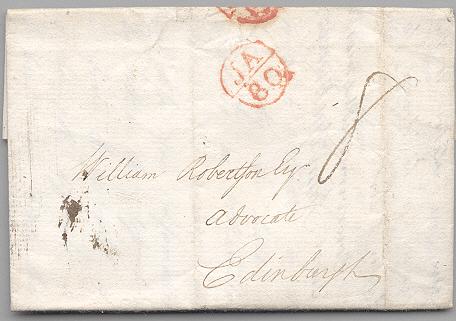 JA
80
8
William Robertson Esqr
Advocate
Edinburgh